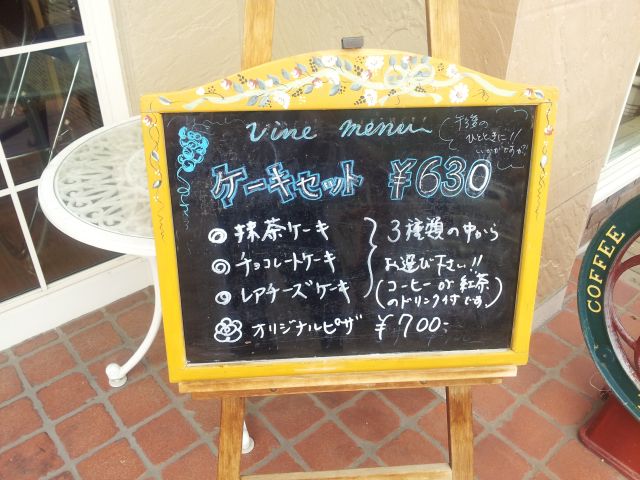 vine menu
午後の
ひとときに!!
いかがですか?
ケーキセット ¥630
抹茶ケーキ
チョコレートケーキ
レアチーズケーキ
3種類の中から
お選び下さい!!
(コーヒー or 紅茶
のドリンク付です。)
オリジナルピザ ¥700-
COFFEE